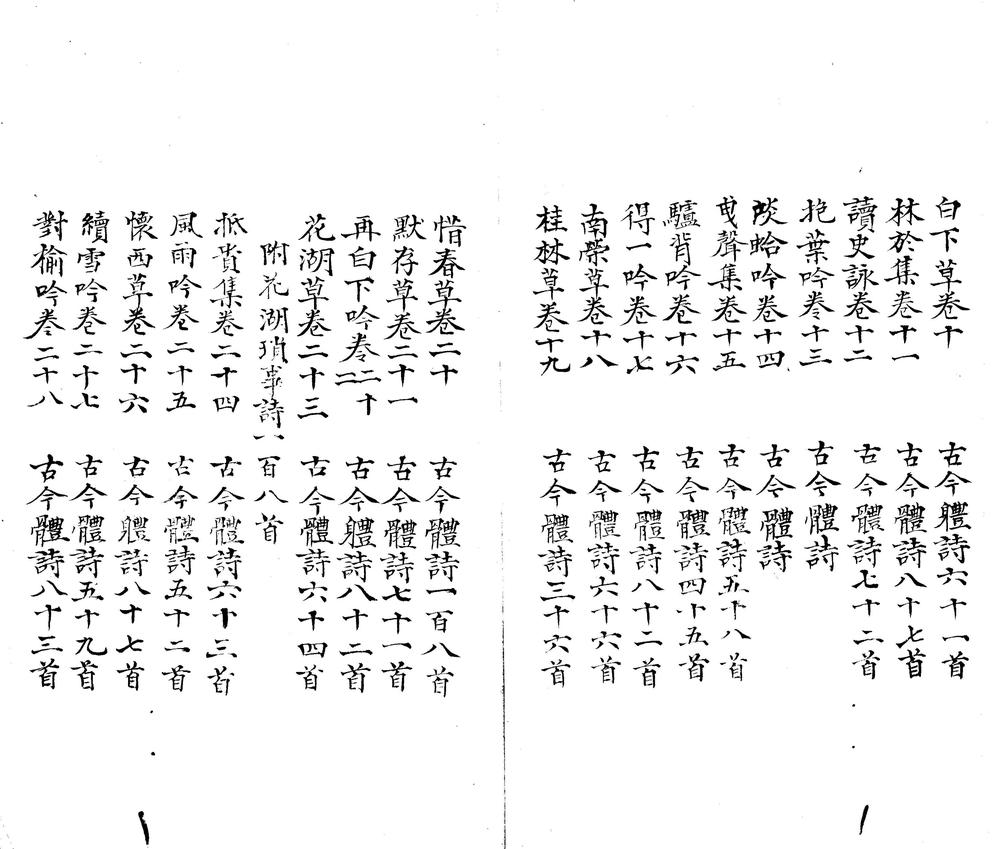 白下草卷十 古今軆詩六十一首
林於集卷十一 古今體詩八十七首
讀史詠卷十二 古今體詩七十二首
抱葉吟卷十三 古今體詩
啖蛤吟卷十四 古今體詩
曳聲集卷十五 古今體詩五十八首
驢背吟卷十六 古今體詩四十五首
得一吟卷十七 古今體詩八十二首
南榮草卷十八 古今體詩六十六首
桂林草卷十九 古今體詩三十六首
惜春草卷二十 古今體詩一百八首
默存草卷二十一 古今體詩七十一首
再白下吟卷二十二 古今軆詩八十二首
花湖草卷二十三 古今體詩六十四首
附花湖瑣事詩一百八首
抵貲集卷二十四 古今體詩六十三首
風雨吟卷二十五 古今體詩五十二首
懷西草卷二十六 古今軆詩八十七首
續雪吟卷二十七 古今體詩五十九首
對榆吟卷二十八 古今體詩八十三首